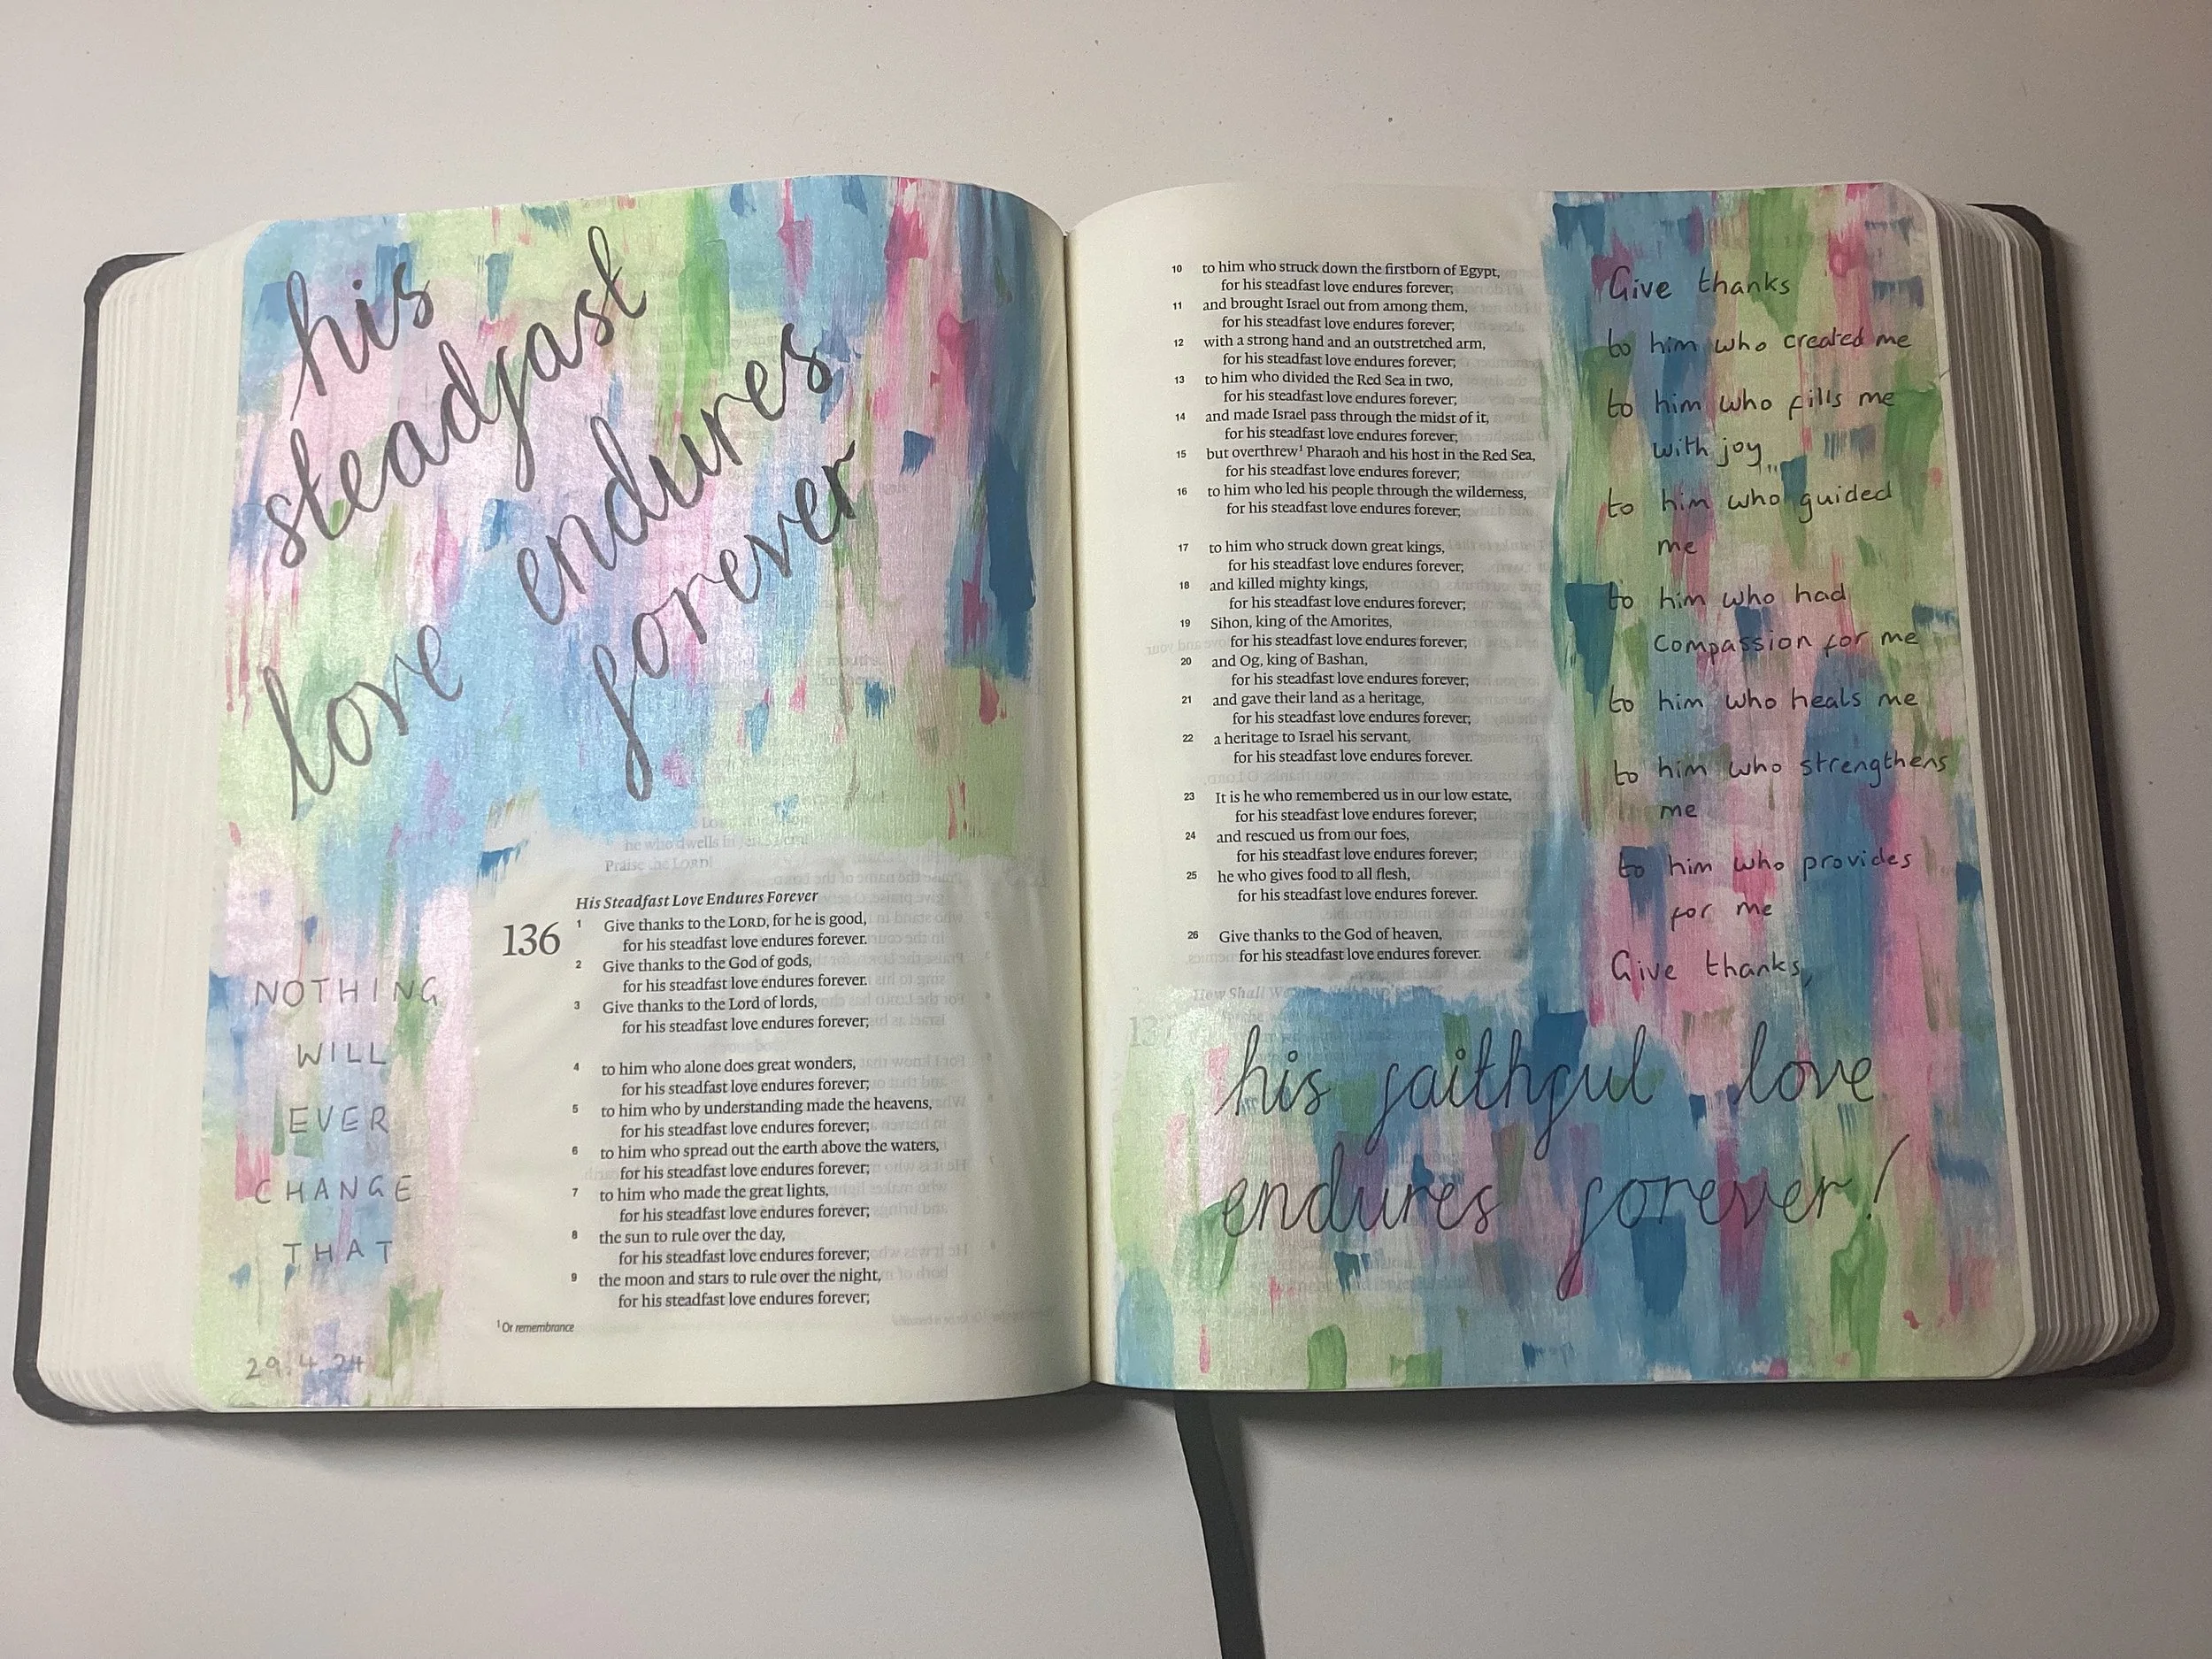 his
steadfast
love endures
forever
he who dwells in
Praise the LORD!
His Steadfast Love Endures Forever
136 1 Give thanks to the LORD, for he is good,
for his steadfast love endures forever.
2 Give thanks to the God of gods,
for his steadfast love endures forever.
3 Give thanks to the Lord of lords,
for his steadfast love endures forever;
4 to him who alone does great wonders,
for his steadfast love endures forever;
5 to him who by understanding made the heavens,
for his steadfast love endures forever;
6 to him who spread out the earth above the waters,
for his steadfast love endures forever;
7 to him who made the great lights,
for his steadfast love endures forever;
8 the sun to rule over the day,
for his steadfast love endures forever;
9 the moon and stars to rule over the night,
for his steadfast love endures forever;
1 Or remembrance
NOTHING
WILL
EVER
CHANGE
THAT
29.4.24
10 to him who struck down the firstborn of Egypt,
for his steadfast love endures forever;
11 and brought Israel out from among them,
for his steadfast love endures forever;
12 with a strong hand and an outstretched arm,
for his steadfast love endures forever;
13 to him who divided the Red Sea in two,
for his steadfast love endures forever;
14 and made Israel pass through the midst of it,
for his steadfast love endures forever;
15 but overthrew1 Pharaoh and his host in the Red Sea,
for his steadfast love endures forever;
16 to him who led his people through the wilderness,
for his steadfast love endures forever;
17 to him who struck down great kings,
for his steadfast love endures forever;
18 and killed mighty kings,
for his steadfast love endures forever;
19 Sihon, king of the Amorites,
for his steadfast love endures forever;
20 and Og, king of Bashan,
for his steadfast love endures forever;
21 and gave their land as a heritage,
for his steadfast love endures forever;
22 a heritage to Israel his servant,
for his steadfast love endures forever.
23 It is he who remembered us in our low estate,
for his steadfast love endures forever;
24 and rescued us from our foes,
for his steadfast love endures forever;
25 he who gives food to all flesh,
for his steadfast love endures forever.
26 Give thanks to the God of heaven,
for his steadfast love endures forever.
How Shall We
Give thanks
to him who created me
to him who fills me
with joy
to him who guided
me
to him who had
compassion for me
to him who heals me
to him who strengthens
me
to him who provides
for me
Give thanks,
his faithful love
endures forever!